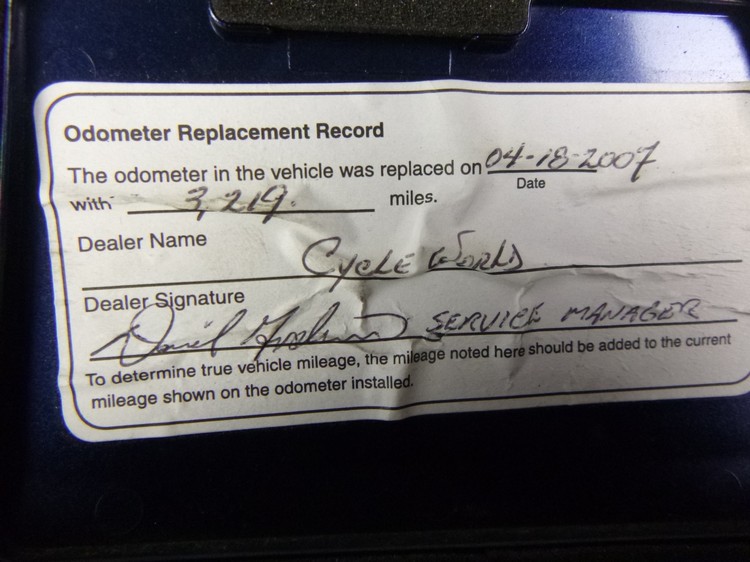 Odometer Replacement Record
The odometer in the vehicle was replaced on 04-18-2007
Date
with 3,219. miles.
Dealer Name
Cycle World
Dealer Signature
David SERVICE MANAGER
To determine true vehicle mileage, the mileage noted here should be added to the current
mileage shown on the odometer installed.